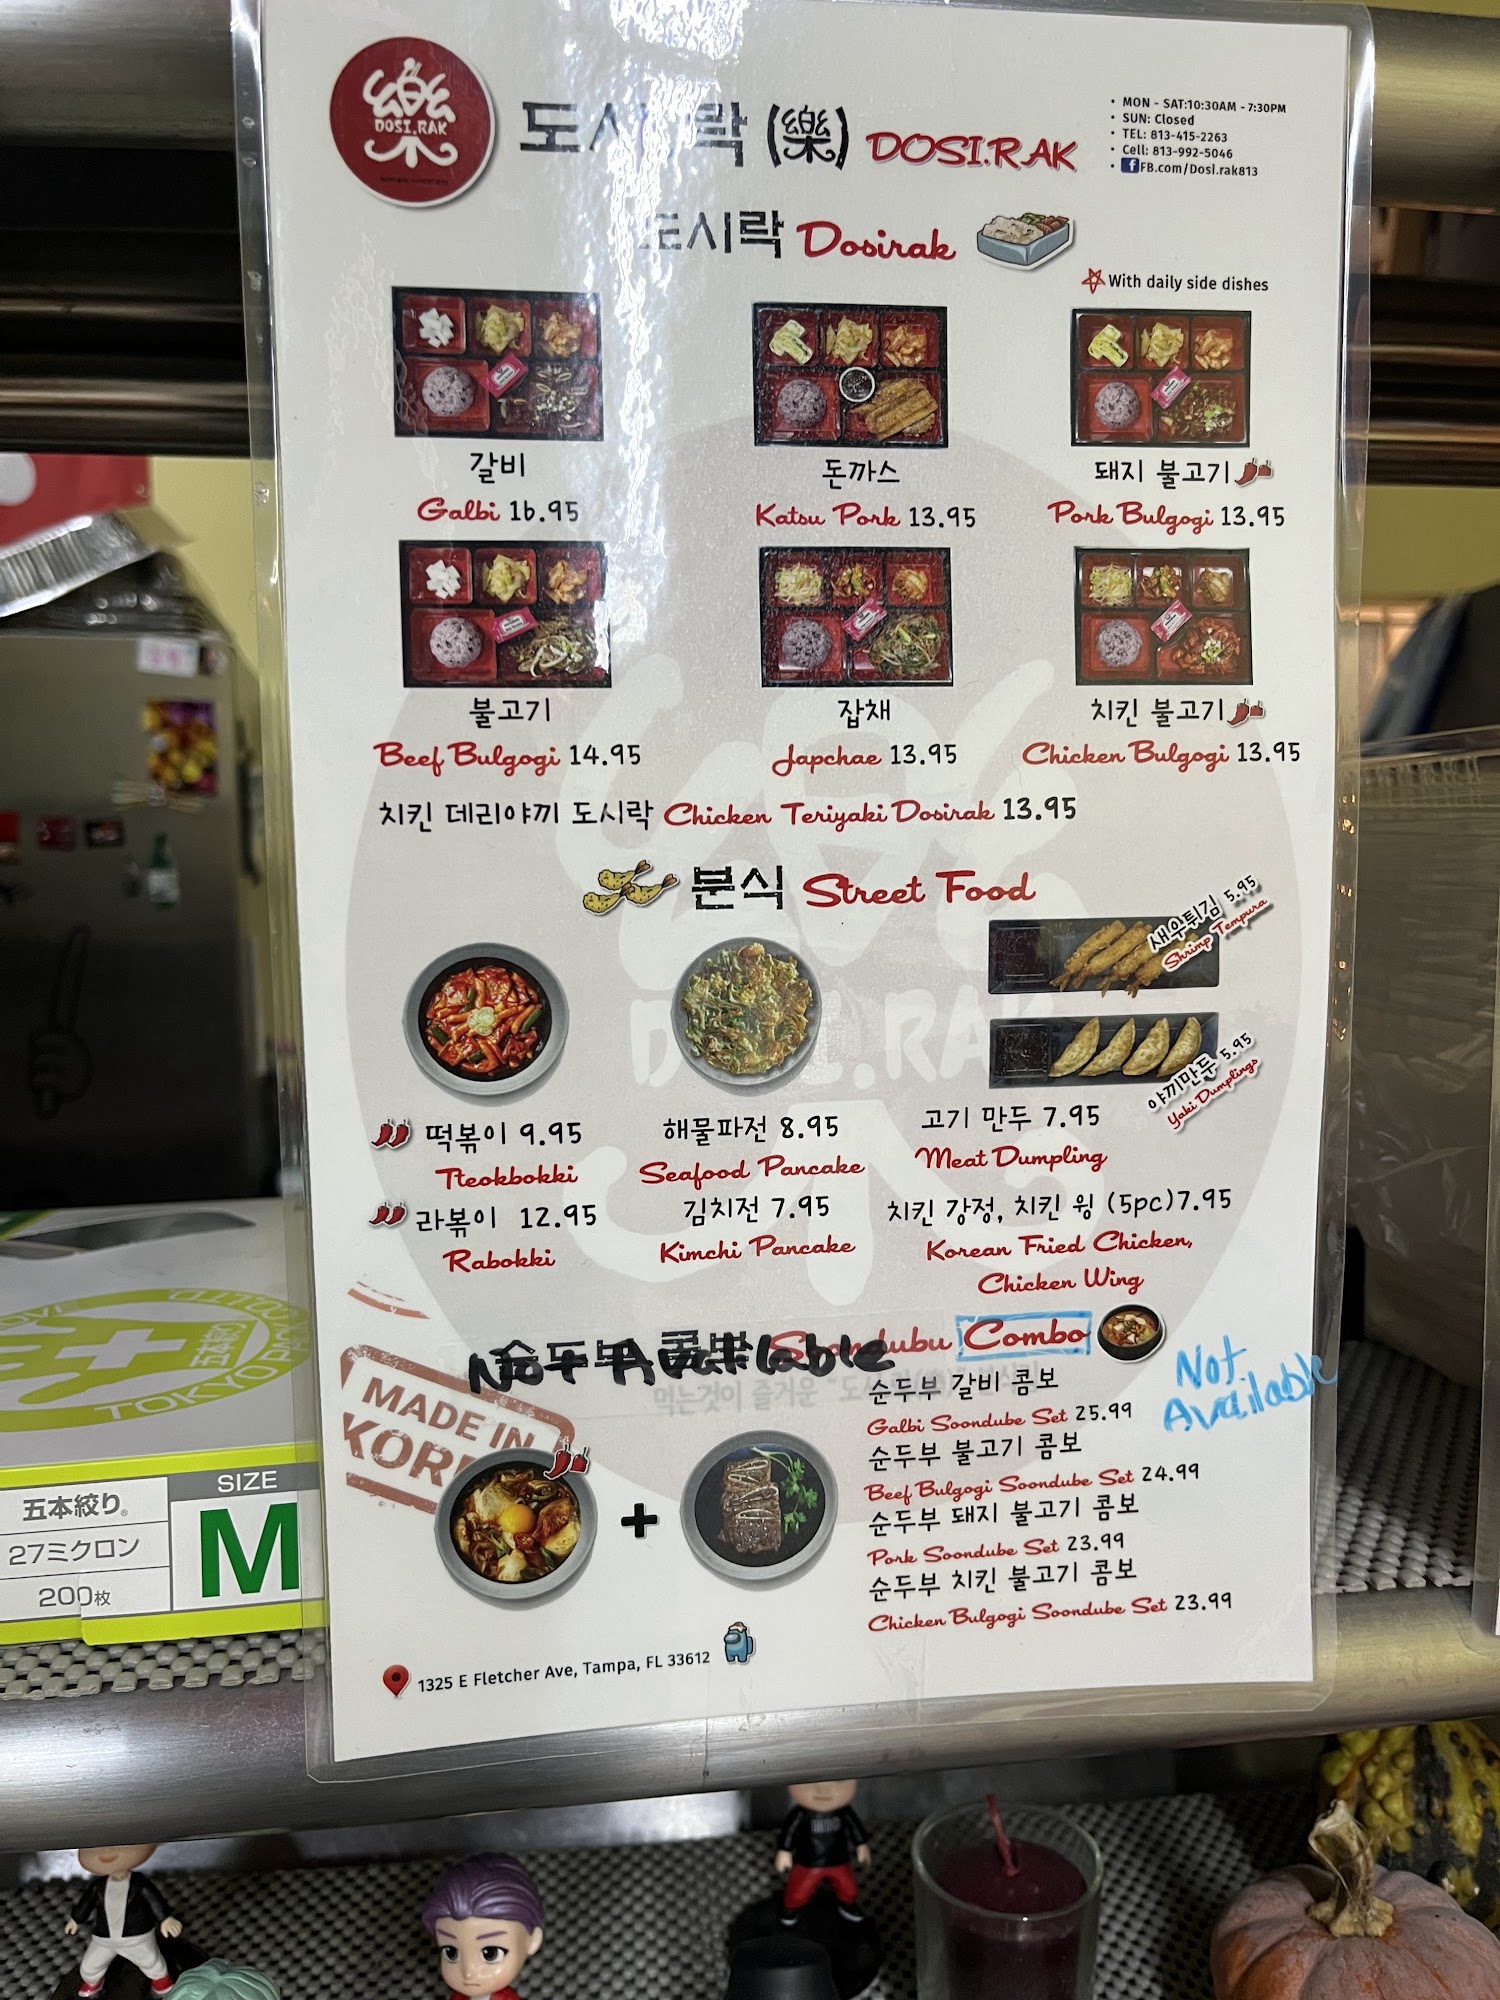 樂
DOSI.RAK
도시락 (樂) DOSI.RAK
• MON - SAT:10:30AM - 7:30PM
• SUN: Closed
• TEL: 813-415-2263
• Cell: 813-992-5046
• f FB.com/Dosi.rak813
도시락 Dosirak
With daily side dishes
갈비
Galbi 16.95
돈까스
Katsu Pork 13.95
돼지 불고기
Pork Bulgogi 13.95
불고기
Beef Bulgogi 14.95
잡채
Japchae 13.95
치킨 불고기
Chicken Bulgogi 13.95
치킨 데리야끼 도시락 Chicken Teriyaki Dosirak 13.95
분식 Street Food
새우튀김 5.95
Shrimp Tempura
야끼만두 5.95
Yaki Dumplings
떡볶이 9.95
Tteokbokki
해물파전 8.95
Seafood Pancake
고기 만두 7.95
Meat Dumpling
라볶이 12.95
Rabokki
김치전 7.95
Kimchi Pancake
치킨 강정, 치킨 윙 (5pc)7.95
Korean Fried Chicken,
Chicken Wing
순두부 콤보 Soondubu Combo
Not Available
Not
Available
먹는것이 즐거운 "도시락
MADE IN
KOR
순두부 갈비 콤보
Galbi Soondube Set 25.99
순두부 불고기 콤보
Beef Bulgogi Soondube Set 24.99
순두부 돼지 불고기 콤보
Pork Soondube Set 23.99
순두부 치킨 불고기 콤보
Chicken Bulgogi Soondube Set 23.99
+
1325 E Fletcher Ave, Tampa, FL 33612
TOKYO
五本絞り®
27ミクロン
200枚
SIZE
M